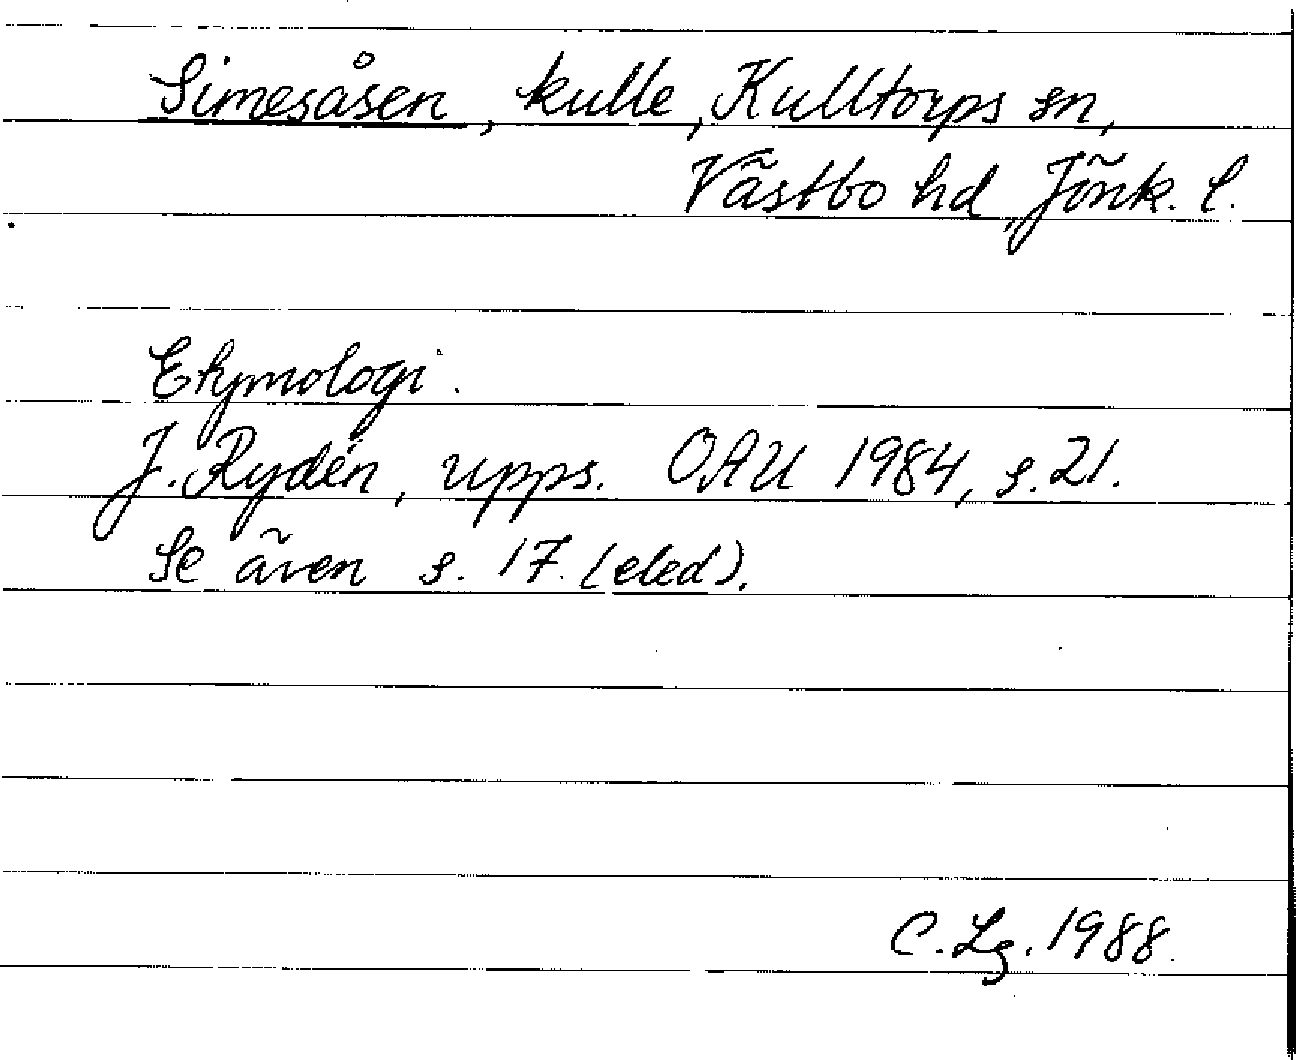 Simesåsen, kulle, Kulltorps sn,
Västbo hd, Jönk. l.
Etymologi.
J. Rydén, upps. OAU 1984, s. 21.
Se även s. 17. (eled).
C. Lg. 1988.